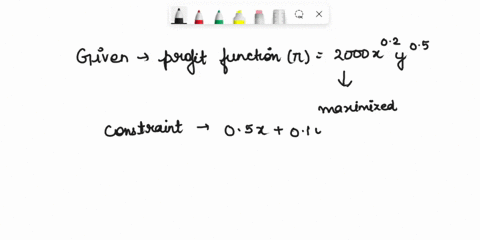 Given → profit function (π) = 2000x^0.2 y^0.5
↓
maximized
Constraint → 0.5x + 0.1